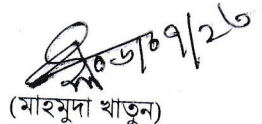 ০৬/০৭/২৬
(মাহমুদা খাতুন)